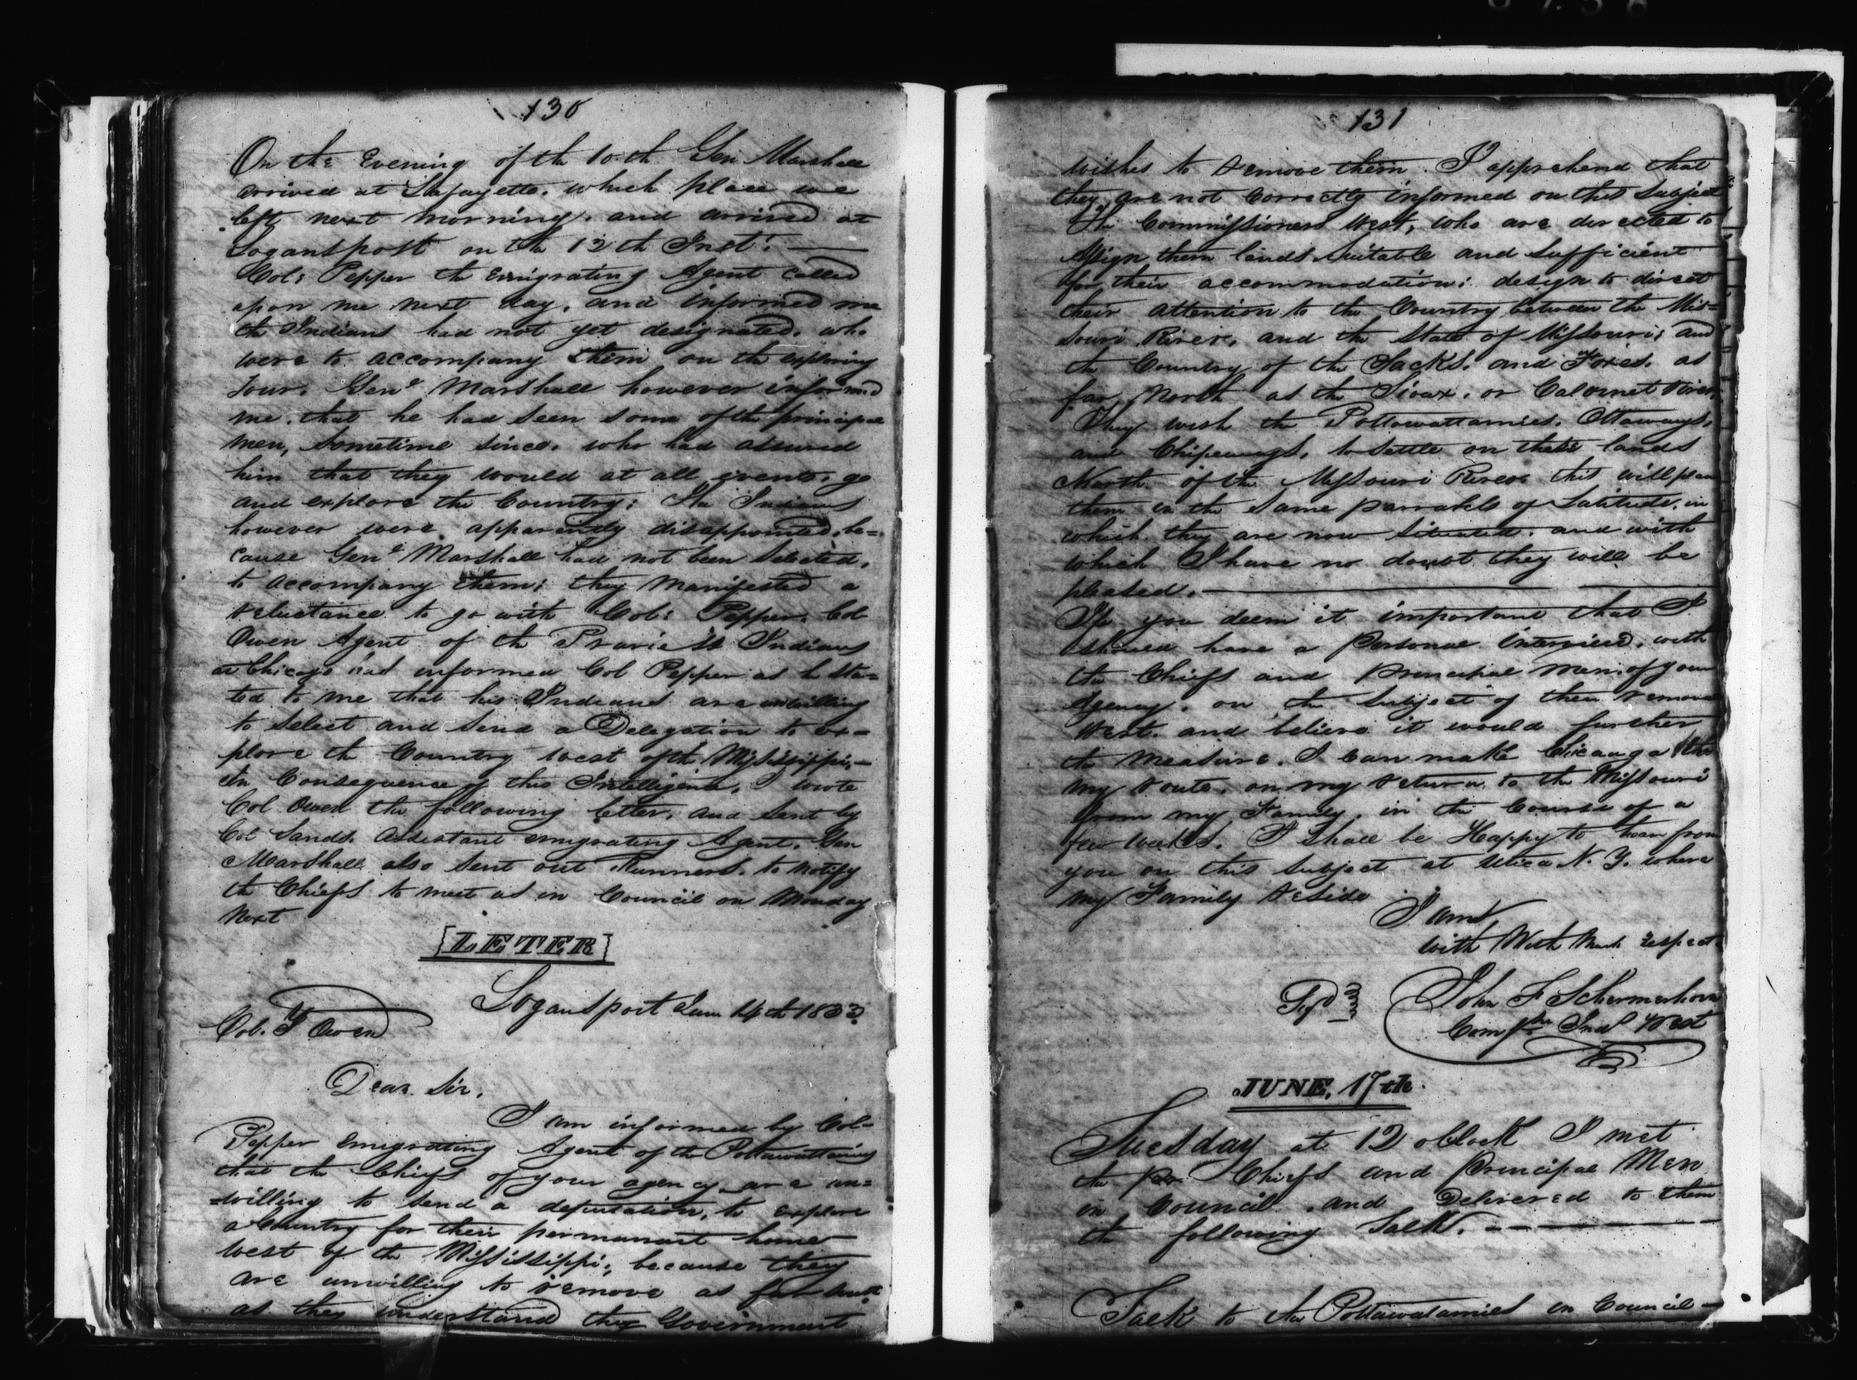 130
On the Evening of the 10th Gen Marshall
arrived at Lafayette. which place we
left next morning. and arrived at
Logansport on the 12th Inst.
Col: Pepper the Emigrating Agent called
upon me next day. and informed me
the Indians had not yet designated. who
were to accompany them on the exploring
tour. Genl Marshall however informed
me. that he had seen some of the principal
men, sometime since. who had assured
him that they would at all events. go
and explore the Country; The Indians
however were apparently disappointed. be=
cause Genl Marshall had not been selected.
to accompany them; they manifested a
reluctance to go with Col: Pepper. Col
Owen Agent of the Prarie Indians
at Chicago had informed Col Pepper as he sta=
ted to me that his Indians are unwilling
to select and send a Delegation to ex=
plore the Country west of the Mississippi.—
In Consequence of this Intelligence, I wrote
Col Owen the following letter, and sent by
Col Sands. assistant emigrating Agent. Gen
Marshall also sent out Runners. to notify
the Chiefs to meet us in Council on Monday
Next
[LETER]
Logansport June 14th 1833.
Col. T Owen
Dear. Sir.
I am informed by Col=
Pepper emigrating Agent of the Pottawattamies
that the Chiefs of your agency are un=
=willing to send a deputation, to explore
a Country for their permanant home
west of the Mississippi; because they
are unwilling to remove as far
as they understand the Government
131
wishes to remove them. I apprehend that
they are not correctly informed on this subject
The Commissioners West, who are directed to
Assign them lands suitable and sufficient
for their accommodation: design to direct
their attention to the Country between the Mis=
souri River, and the State of Missouri; and
the Country of the Sacks. and Foxes. as
far North as the Sioux. or Calomet River
They wish the Pottawattamies. Ottaways.
and Chipeways. to settle on these lands
North of the Missouri River this will place
them in the same parralels of Latitude. in
which they are now situated. and with
which I have no doubt they will be
pleased.
If you deem it important that I
should have a personal interview. with
the Chiefs and principal men. of your
Agency. on the subject of their remove
West. and believe it would further
the measure. I can make Chicauga
my route. on my return to the Missouri
from my Family, in the Course of a
few weeks. I shall be Happy to hear from
you on this subject at Utica N. Y. where
my Family reside
I am
with With Much respect
John F Schermerhorn
Indn West
JUNE, 17th.
Tuesday at 12 oClock I met
the Chiefs and principal Men
in Council. and Delivered to them
the following Talk.
Talk to the Pottawatamies in Council—